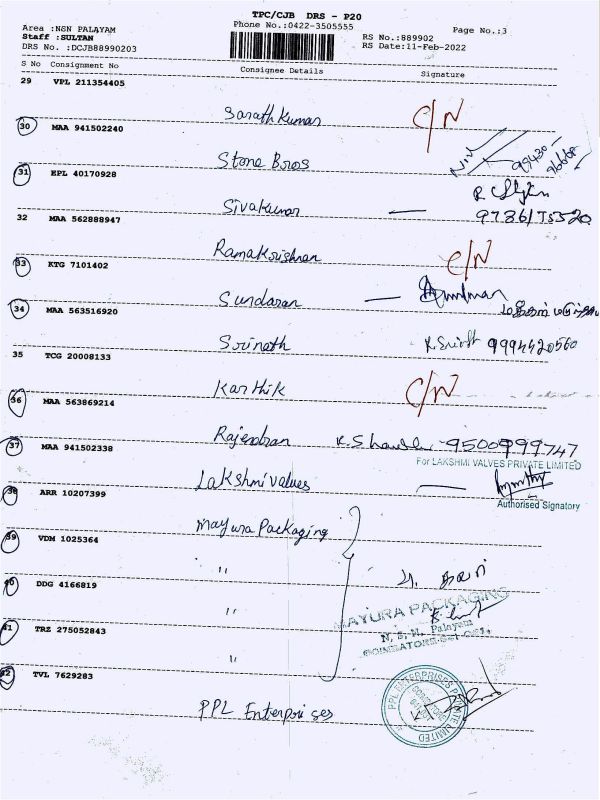 TPC/CJB DRS - P20
Area :NGN PALAYAM Phone No.:0422-3505555 Page No.:3
Staff :SULTAN RS No.:889902
DRS No. :DCJB88990203 RS Date:11-Feb-2022
S No Consignment No Consignee Details Signature
29 VPL 211354405
Sarath Kumar C/N
30 MAA 941502240
Stone Bros
31 EPL 40170928
Sivakumar —
32 MAA 562888947
Ramakrishnan C/N
33 KTG 7101402
Sundaran —
34 MAA 563516920
Srinath 9994420560
35 TCG 20008133
Karthik C/N
36 MAA 563869214
Rajendran 9500999747
37 MAA 941502338
For LAKSHMI VALVES PRIVATE LIMITED
Lakshmi valves —
38 ARR 10207399 Authorised Signatory
Mayura Packaging
39 VDM 1025364
"
40 DDG 4166819
"
MAYURA PACKAGING
41 TRZ 275052843 N. S. N. Palayam
"
42 TVL 7629283
PPL ENTERPRISES PRIVATE LIMITED
PPL Enterprises